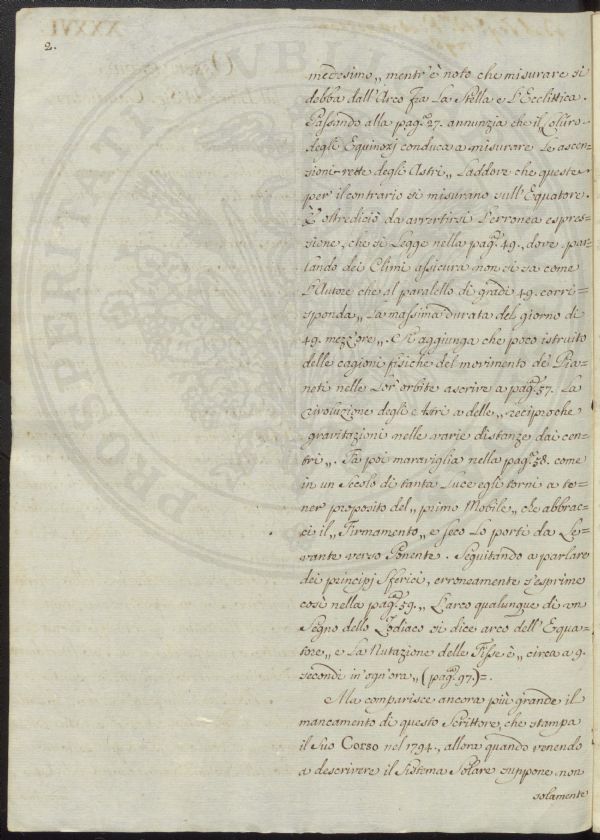 2.
medesimo „ mentr'è noto che misurare si
debba dall'Arco fra La Stella e L'Ecclittica.
Passando alla pag.ª 27. annunzia che il Coluro
degli Equinozj conduca a misurare Le ascen=
sioni rette degli Astri „ Laddove che queste
per il contrario si misurano sull'Equatore.
E' oltrediciò da avvertirsi L'erronea espres=
sione, che si Legge nella pag.ª 49., dove par=
lando dei Climi assicura non si sa come
L'Autore che il paralello di gradi 49. corri=
sponda „ La massima durata del giorno di
49. mezz'ore „. Si aggiunga che poco istruito
delle cagioni fisiche del movimento de' Pia=
neti nelle Lor'orbite ascrive a pag.ª 57. La
rivoluzione degli Astri a delle „ reciproche
gravitazioni nelle varie distanze dai cen=
tri „. Fa poi maraviglia nella pag.ª 58. come
in un Secolo di tanta Luce egli torni a te=
ner proposito del „ primo Mobile „ che abbrac=
ci il „ Firmamento „ e seco Lo porti da Le=
vante verso Ponente. Seguitando a parlare
dei principj Sferici, erroneamente s'esprime
così nella pag.ª 59. „ L'arco qualunque di un
Segno dello Zodiaco si dice arco dell'Equa=
tore „ e La Nutazione delle Fisse è „ circa a 9.
secondi in ogn'ora „ (pag.ª 97.)=.
Ma comparisce ancora più grande il
mancamento di questo Scrittore, che stampa
il Suo Corso nel 1794., allora quando venendo
a descrivere il Sistema Solare suppone non
solamente